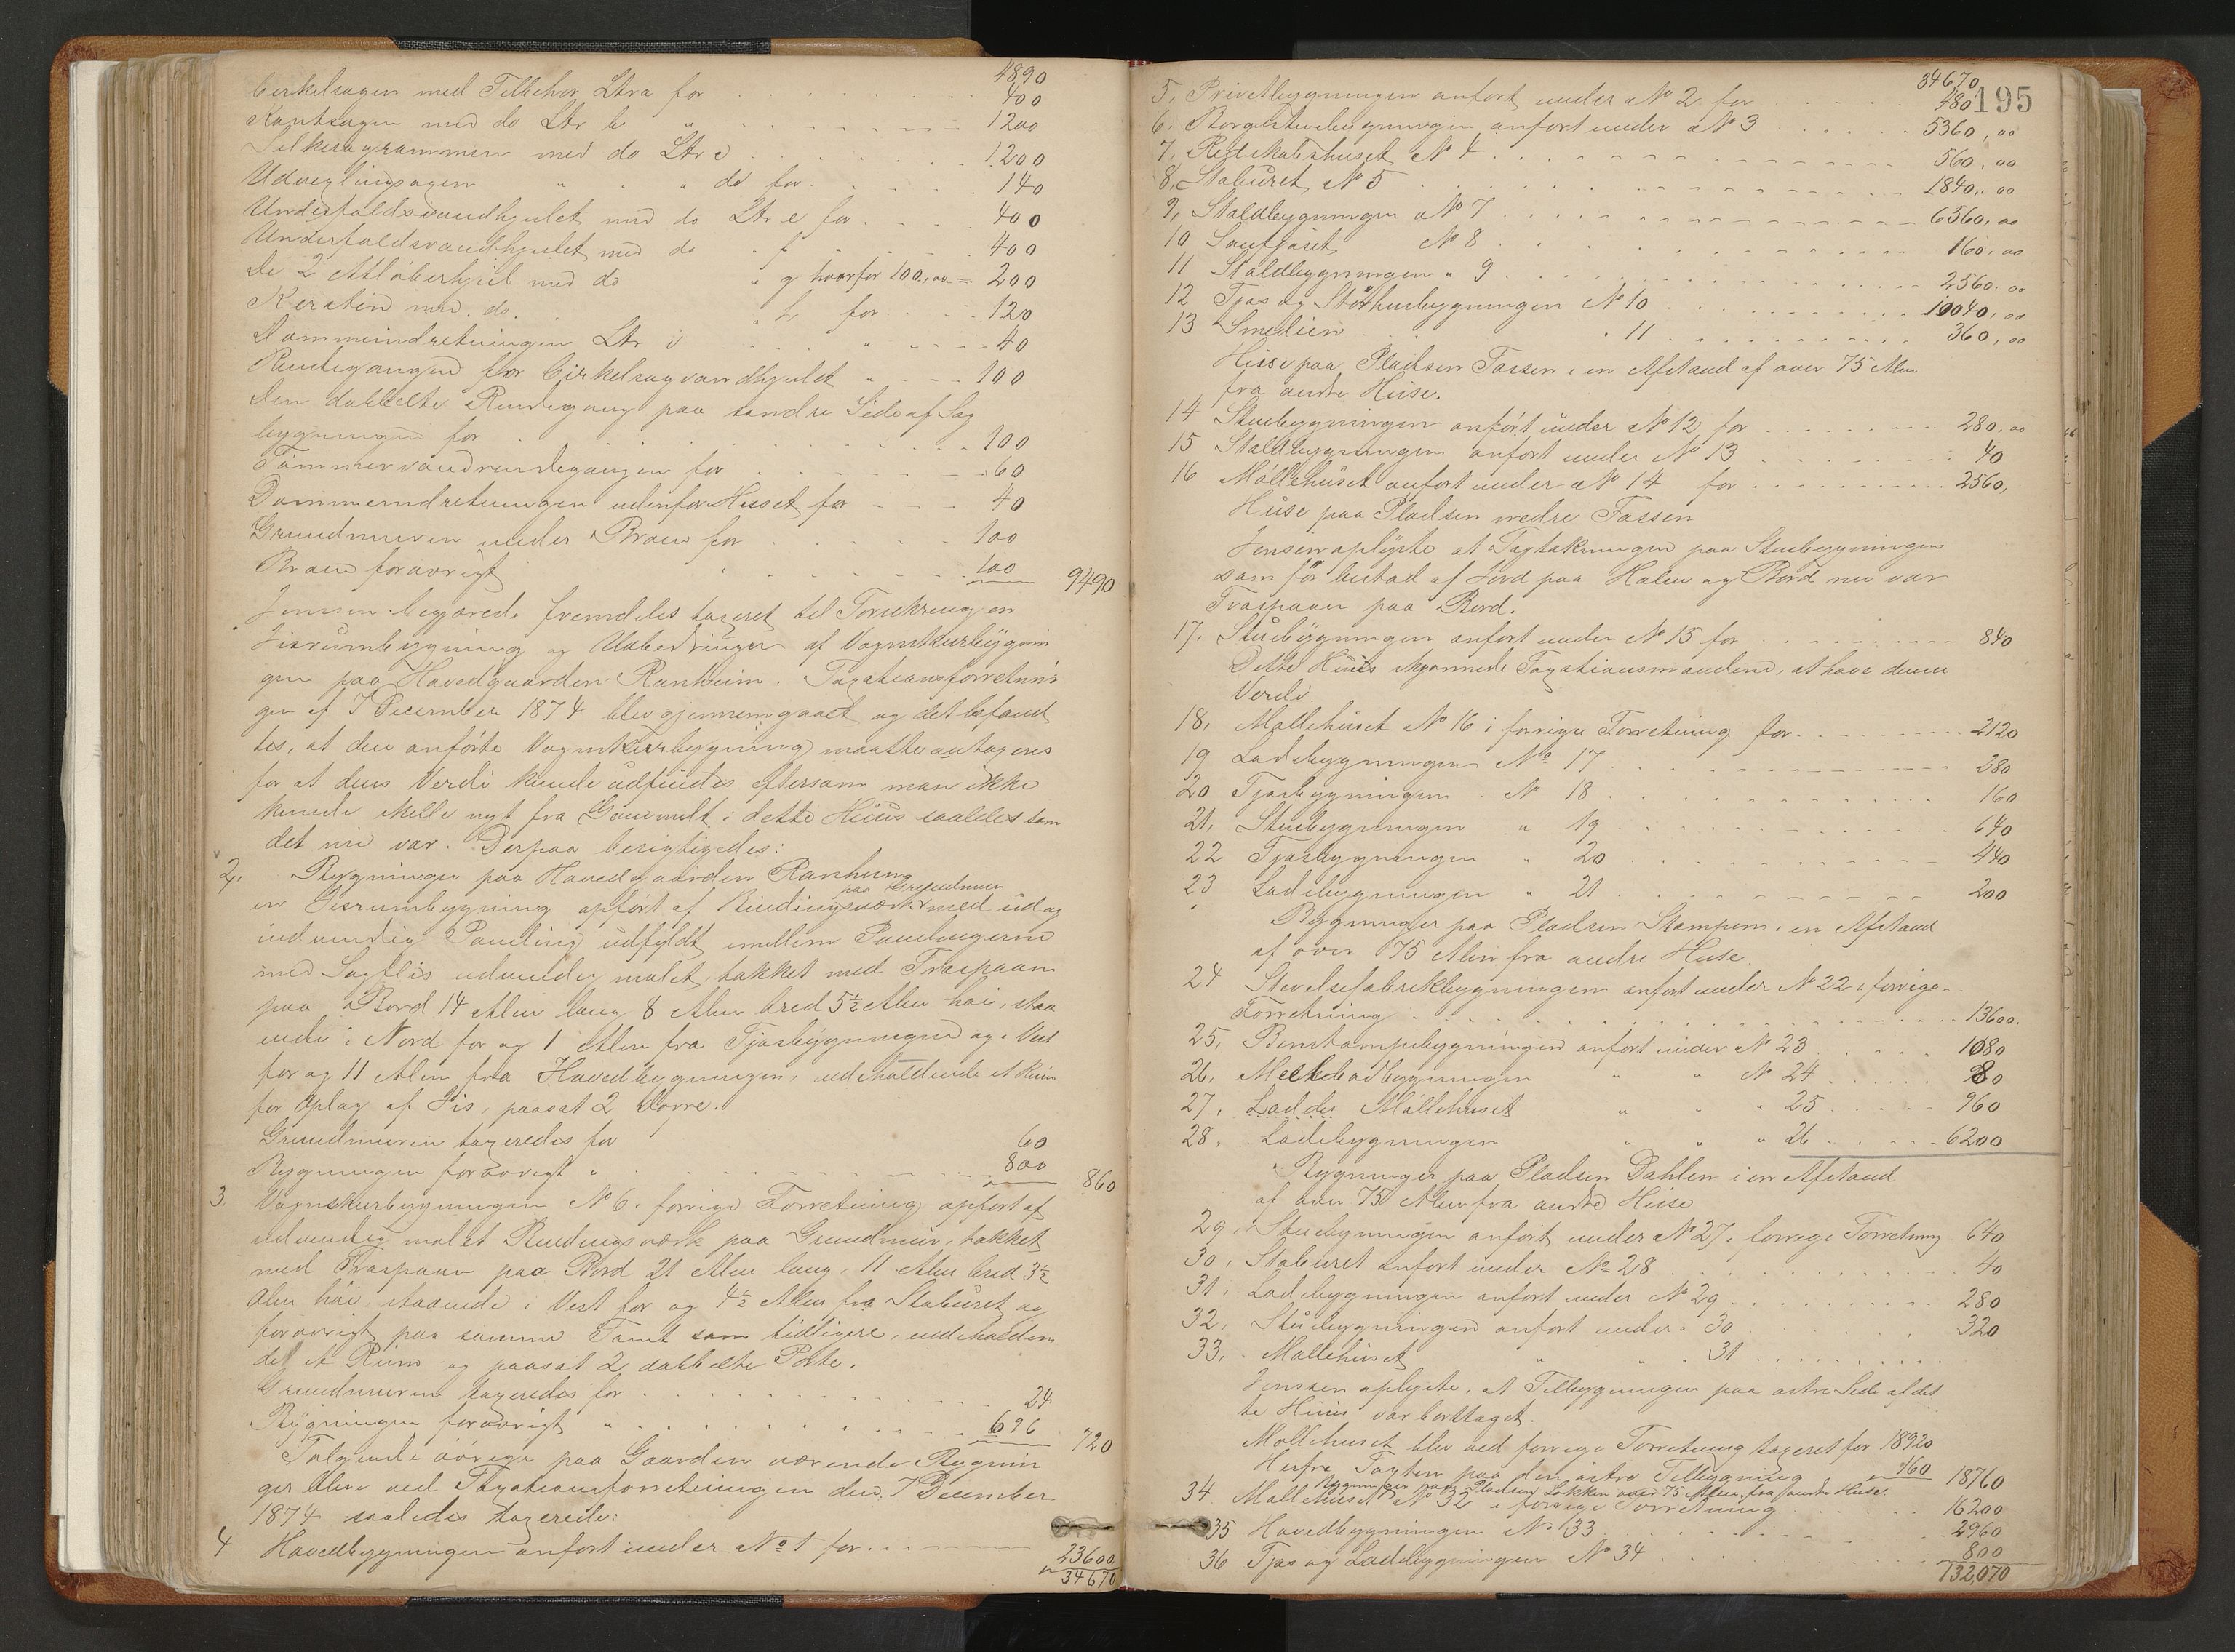 4890
Cirkelsagen med Tilbehør Ltr a for 400
Kantsagen med do Ltr b " 1200
Silkesagrammen med do Ltr c 1200
Udveglingsagen " " do for 140
Underfaldsvandhjulet med do Ltr e for 400
Underfaldsvandhjulet med do " f 400
De 2 Atløberhjul med do " g hvorfor 100,00 = 200
Keratin med do. " h for 120
Dommeindretningen Ltr i " 40
Rendegangen for Cirkelsagvandhjulet " 100
Den dobbelte Rendegang paa søndre Side af Sag
bygningen for 100
Tømmervandrendegangen for 60
Dammeindretningen udenfor Huset for 40
Grundmuren under Broen for 100
Broen forøvrigt " 100 9490
Jenssen begjærede fremdeles taxeret til Forsikring en
Iisrumbygning og Udbedringer af Vognskurbygnin
gen paa Hovedgaarden Ranheim. Taxationsforretnin
gen af 7 December 1874 blev gjennemgaaet og det befand
tes, at den anførte Vognskurbygning maatte omtaxeres
for at dens Verdi kunde udfindes eftersom man ikke
kunde skille nyt fra Gammelt i dette Huus saaledes som
det nu var. Derpaa besigtigedes:
2. Bygninger paa Hovedgaarden Ranheim
paa Grundmur
en Iisrumbygning opført af Bindingsværk med ud og
indvendig Paneling udfyldt mellem Panelingerne
med Sagflis udvendig malet, takket med Træspaan
paa Bord 14 Alen lang 8 Alen bred 5½ Alen høi, staa
ende i Nord for og 1 Alen fra Fjøsbygningen og i Vest
for og 11 Alen fra Hovedbygningen, indeholdende et Rum
for Oplag af Iis, paasat 2 Dørre.
Grundmuren taxeredes for 60
Bygningen forøvrigt " 800 860
3. Vognskurbygningen No 6 i forrige Forretning opført af
udvendig malet Bindingsværk paa Grundmur, takket
med Træspaan paa Bord 21 Alen lang, 11 Alen bred 3½
Alen høi, staaende i Vest for og 4½ Alen fra Staburet og
forøvrigt paa samme Tomt som tidligere, indeholden
de et Rum og paasat 2 dobbelte Porte.
Grundmuren taxeredes for 24
Bygningen forøvrigt " 696 720
Følgende øvrige paa Gaarden værende Bygnin
ger blev ved Taxationsforretningen den 7 December
1874 saaledes taxerede:
4 Hovedbygningen anført under No 1 for 23600
34670
34670
195
5, Privetbygningen anført under No 2 for 480
6, Borgestuebygningen anført under No 3 5360,00
7, Redskabshuset No 4 560,00
8, Staburet No 5 1840,00
9, Staldbygningen No 7 6560,00
10 Saufjøset No 8 160,00
11 Staldbygningen " 9 2560,00
12 Fjøs og Størhusbygningen No 10 10040,00
13 Smedien " 11 360,00
Huse paa Pladsen Fossen i en Afstand af over 75 Alen
fra andre Huse.
14 Stuebygningen anført under No 12 for 280,00
15 Staldbygningen anført under No 13 40
16 Møllehuset anført under No 14 for 2560,
Huse paa Pladsen nedre Fossen
Jenssen oplyste at Tagtækningen paa Stuebygningen
som før bestod af Jord paa Halm og Bord nu var
Træspaan paa Bord.
17. Stuebygningen anført under No 15 for 840
Dette Huus skjønnede Taxationsmændene, at have denne
Verdi.
18, Møllehuset No 16 i forrige Forretning for 2120
19 Ladebygningen No 17 280
20 Fjøsbygningen No 18 160
21, Stuebygningen " 19 640
22 Fjøsbygningen " 20 440
23 Ladebygningen " 21 200
Bygninger paa Pladsen Stampen i en Afstand
af over 75 Alen fra andre Huse.
24 Stivelsefabrikbygningen anført under No 22 i forrige
Forretning 13600.
25, Benstampebygningen anført under No 23 1080
26, Melkebodbygningen " " No 24 80
27, Laddes Møllehuset " " " 25 960
28, Ladebygningen " " " 26 6200
Bygninger paa Pladsen Dahlen i en Afstand
af over 75 Alen fra andre Huse
29, Stuebygningen anført under No 27 i forrige Forretning 640
30, Staburet anført under No 28 40
31, Ladebygningen anført under No 29 280
32, Stuebygningen anført under " 30 320
33, Møllehuset " " " 31
Jenssen oplyste, at Tilbygningen paa østre Side af det
te Huus var borttaget.
Møllehuset blev ved forrige Forretning taxeret for 18920
Herfra Taxten paa den østre Tilbygning 160 18760
Bygninger paa Pladsen Løkken over 75 Alen fra andre Huse.
34 Møllehuset No 32 i forrige Forretning 16200
35 Hovedbygningen No 33 2960
36 Fjøs og Ladebygningen No 34 800
132,070